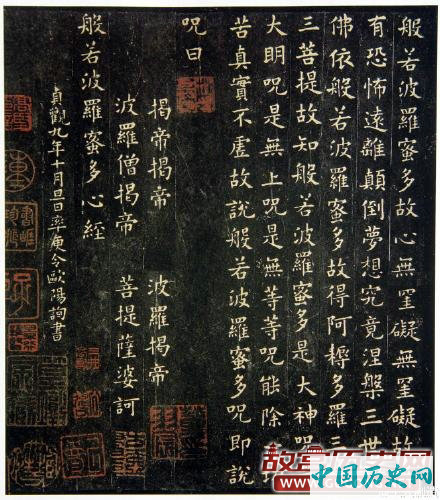 般若波羅蜜多故心無罣礙無罣礙故
有恐怖遠離顛倒夢想究竟涅槃三世
佛依般若波羅蜜多故得阿耨多羅三
三菩提故知般若波羅蜜多是大神咒
大明咒是無上咒是無等等咒能除
苦真實不虛故說般若波羅蜜多咒即說
咒曰
揭帝揭帝 波羅揭帝
波羅僧揭帝 菩提薩婆訶
般若波羅蜜多心經
貞觀九年十月旦日率更令歐陽詢書
中国历史网